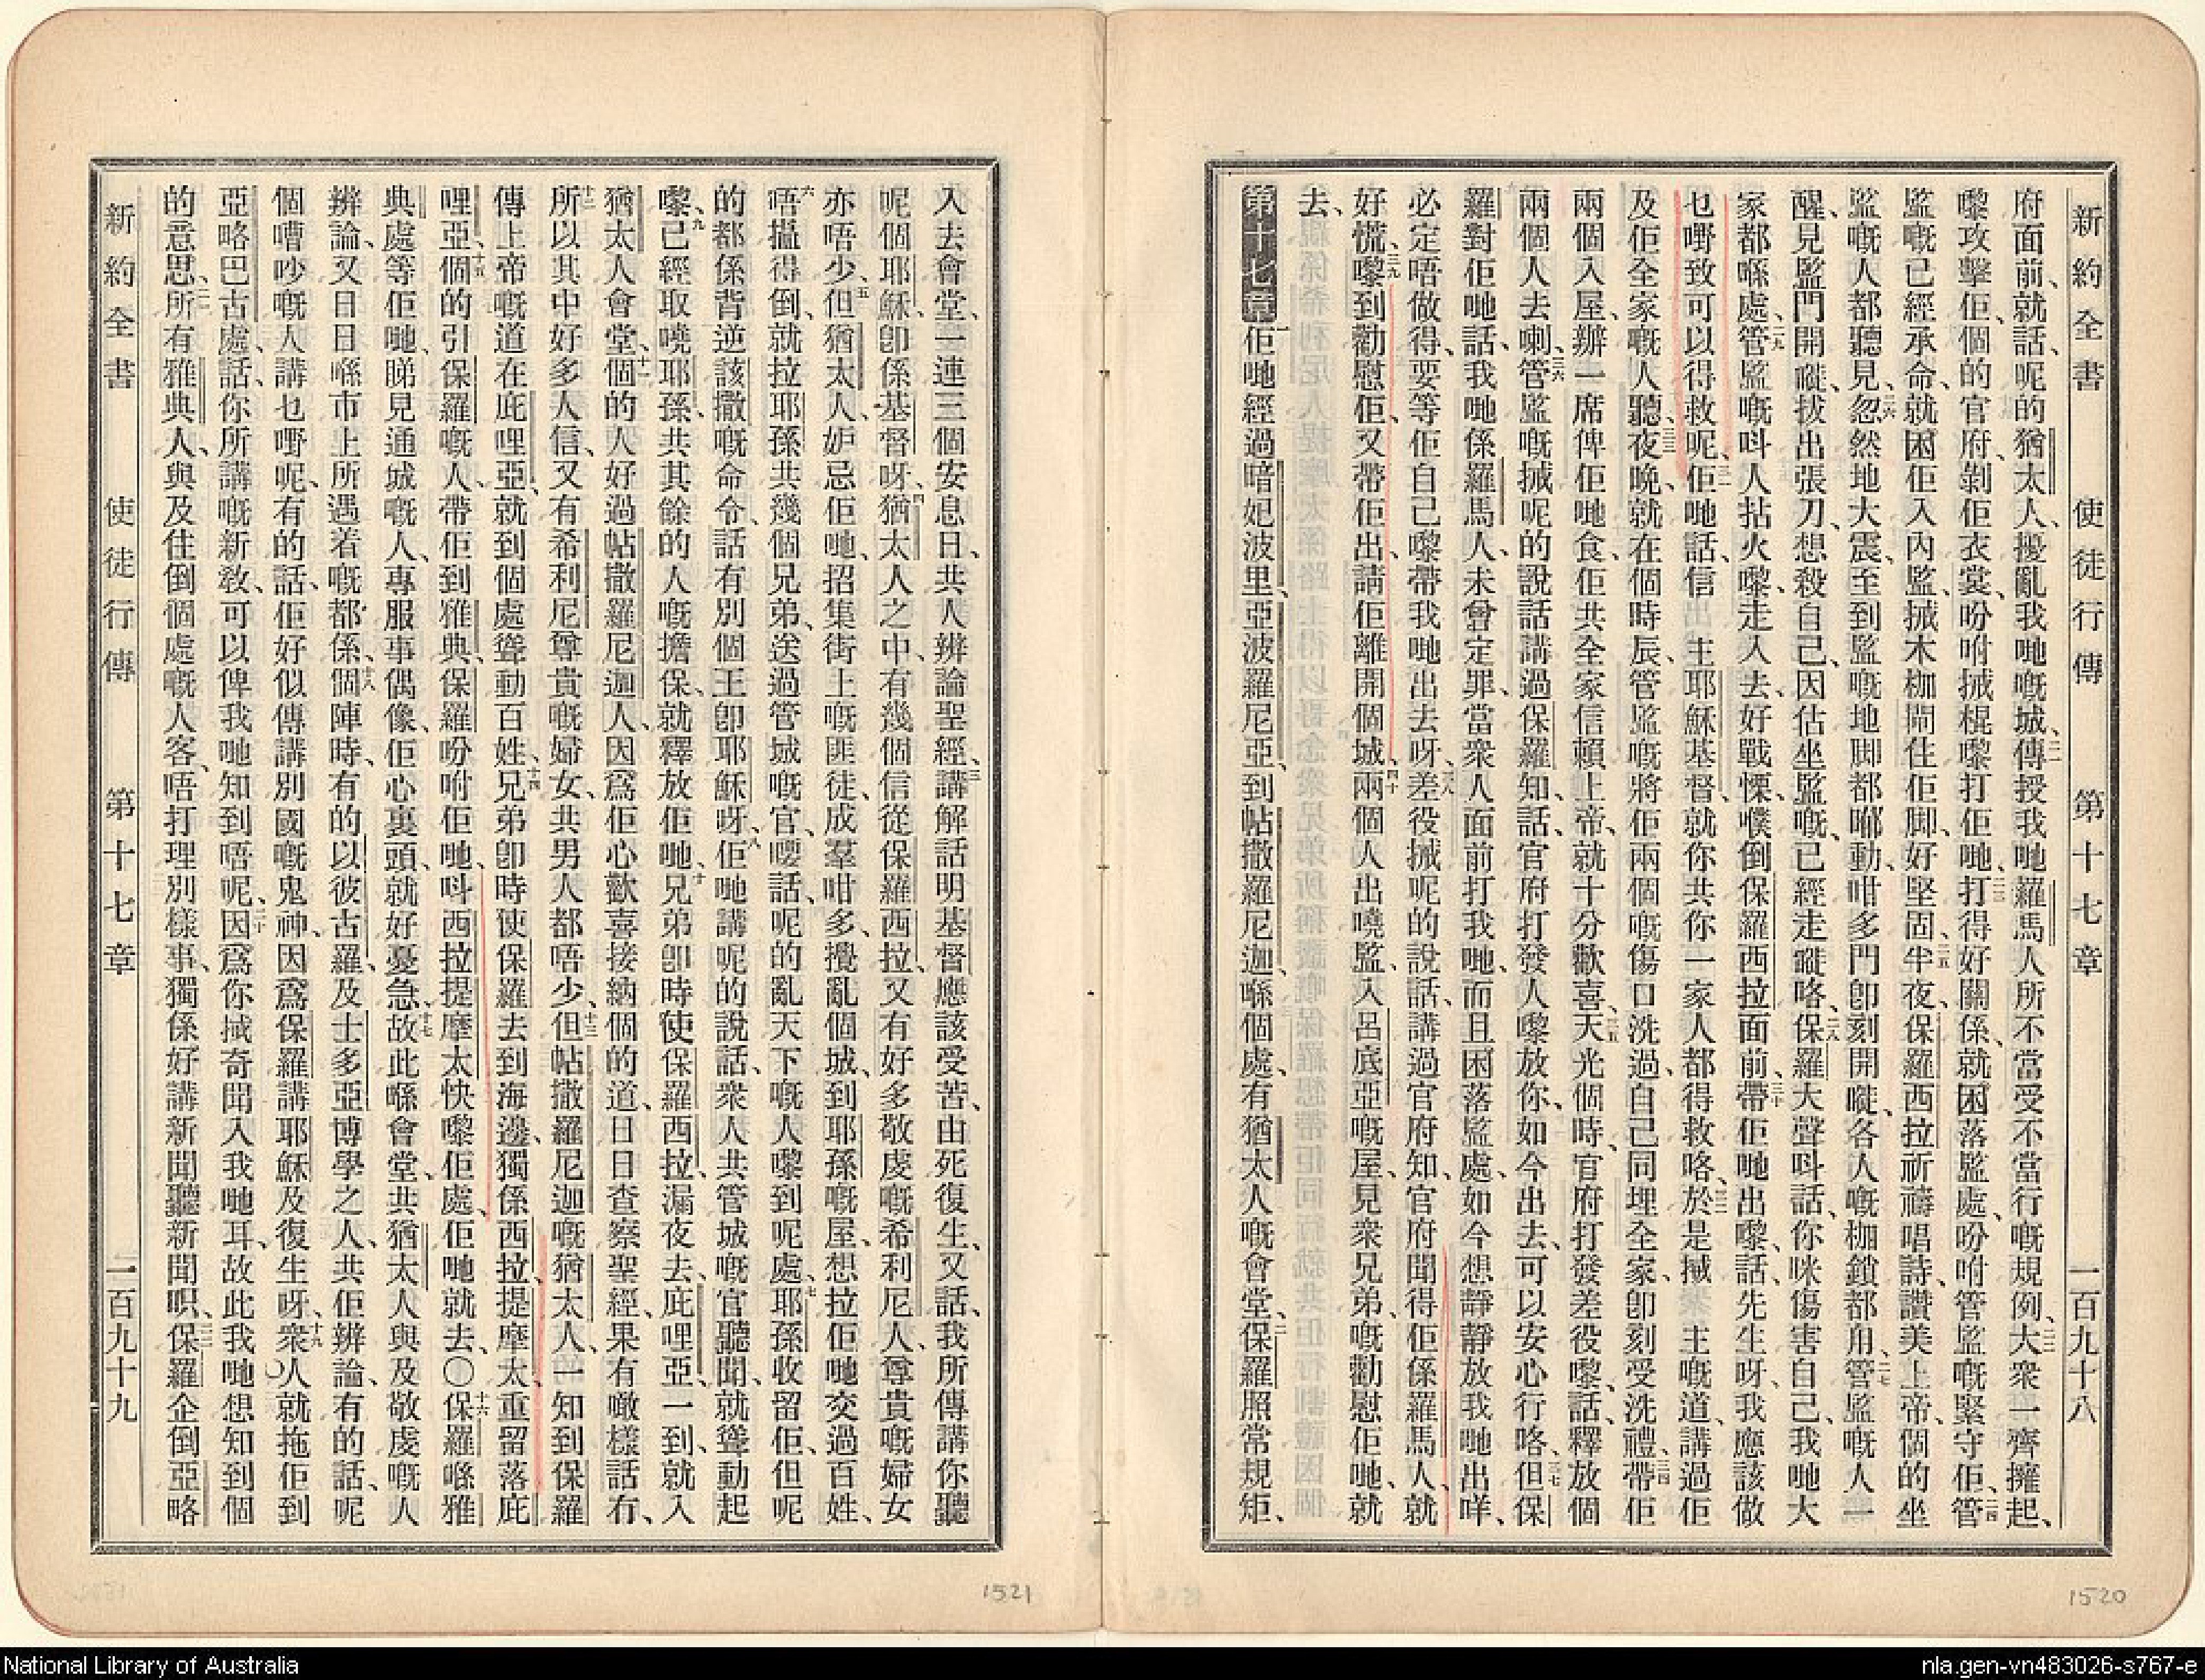 新約全書　使徒行傳　第十七章　一百九十八
府面前、就話、呢的猶太人、擾亂我哋嘅城、傳授我哋羅馬人所不當受不當行嘅規例、大衆一齊擁起、
嚟攻擊佢、個的官府、剝佢衣裳、吩咐搣棍嚟打佢哋、打得好關係、就困落監處、吩咐管監嘅緊守佢、管
監嘅已經承命、就困佢入內監、搣木枷閘住佢脚、好堅固、半夜、保羅西拉祈禱唱詩、讚美上帝、個的坐
監嘅人都聽見、忽然地大震、至到監嘅地脚都郁動、咁多門卽刻開嘥、各人嘅枷鎖都甪、管監嘅人一
醒、見監門開嘥、拔出張刀、想殺自己、因估坐監嘅、已經走嘥咯、保羅大聲呌話、你咪傷害自己、我哋大
家都喺處、管監嘅呌人拈火嚟、走入去、好戰慄、㒒倒保羅西拉面前、帶佢哋出嚟、話、先生呀、我應該做
乜嘢致可以得救呢、佢哋話、信　主耶穌基督、就你共你一家人都得救咯、於是搣　主嘅道、講過佢
及佢全家嘅人聽、夜晚、就在個時辰、管監嘅將佢兩個嘅傷口洗過、自己同埋全家、卽刻受洗禮、帶佢
兩個入屋、辦一席俾佢哋食、佢共全家信賴上帝、就十分歡喜、天光個時、官府打發差役嚟、話、釋放個
兩個人去喇、管監嘅搣呢的說話、講過保羅知、話、官府打發人嚟放你、如今出去、可以安心行咯、但保
羅對佢哋話、我哋係羅馬人、未曾定罪、當衆人面前打我哋、而且困落監處、如今想靜靜放我哋出咩、
必定唔做得、要等佢自己嚟帶我哋出去呀、差役搣呢的說話、講過官府知、官府聞得佢係羅馬人、就
好慌、嚟到勸慰佢、又帶佢出、請佢離開個城、兩個人出嘵監、入呂底亞嘅屋、見衆兄弟、嘅勸慰佢哋、就
去、
第十七章　佢哋經過暗妃波里、亞波羅尼亞、到帖撒羅尼迦、喺個處、有猶太人嘅會堂、保羅照常規矩、
入去會堂、一連三個安息日、共人辨論聖經、講解話明基督應該受苦、由死復生、又話、我所傳講你聽
呢個耶穌、卽係基督呀、猶太人之中、有幾個信從保羅西拉、又有好多敬虔嘅希利尼人、尊貴嘅婦女
亦唔少、但猶太人、妒忌佢哋、招集街上嘅匪徒、成羣咁多、攪亂個城、到耶孫嘅屋、想拉佢哋交過百姓、
唔搵得倒、就拉耶孫共幾個兄弟、送過管城嘅官、嗌話、呢的亂天下嘅人嚟到呢處、耶孫收留佢、但呢
的都係背逆該撒嘅命令、話有別個王卽耶穌呀、佢哋講呢的說話、衆人共管城嘅官聽聞、就聳動起
嚟、已經取嘵耶孫、共其餘的人嘅擔保、就釋放佢哋、兄弟卽時使保羅西拉、漏夜去庇哩亞、一到、就入
猶太人會堂、個的人好過帖撒羅尼迦人、因爲佢心歡喜接納個的道、日日查察聖經、果有噉樣話冇、
所以其中好多人信、又有希利尼尊貴嘅婦女、共男人都唔少、但帖撒羅尼迦嘅猶太人、一知到保羅
傳上帝嘅道在庇哩亞、就到個處聳動百姓、兄弟卽時使保羅去到海邊、獨係西拉、提摩太重留落庇
哩亞、個的引保羅嘅人、帶佢到雅典、保羅吩咐佢哋、呌西拉提摩太快嚟佢處、佢哋就去、〇保羅喺雅
典處等佢哋、睇見通城嘅人、專服事偶像、佢心裏頭、就好憂急、故此喺會堂、共猶太人與及敬虔嘅人
辨論、又日日喺市上所遇着嘅都係、個陣時、有的以彼古羅、及士多亞博學之人、共佢辨論、有的話、呢
個嘈吵嘅人講乜嘢呢、有的話、佢好似傳講別國嘅鬼神、因爲保羅講耶穌及復生呀、衆人就拖佢到
亞略巴古處、話、你所講嘅新敎、可以俾我哋知到唔呢、因爲你搣奇聞入我哋耳、故此我哋想知到個
的意思、所有雅典人、與及住倒個處嘅人客、唔打理別樣事、獨係好講新聞聽新聞呮、保羅企倒亞略
新約全書　使徒行傳　第十七章　一百九十九
1521
1520
National Library of Australia
nla.gen-vn483026-s767-e